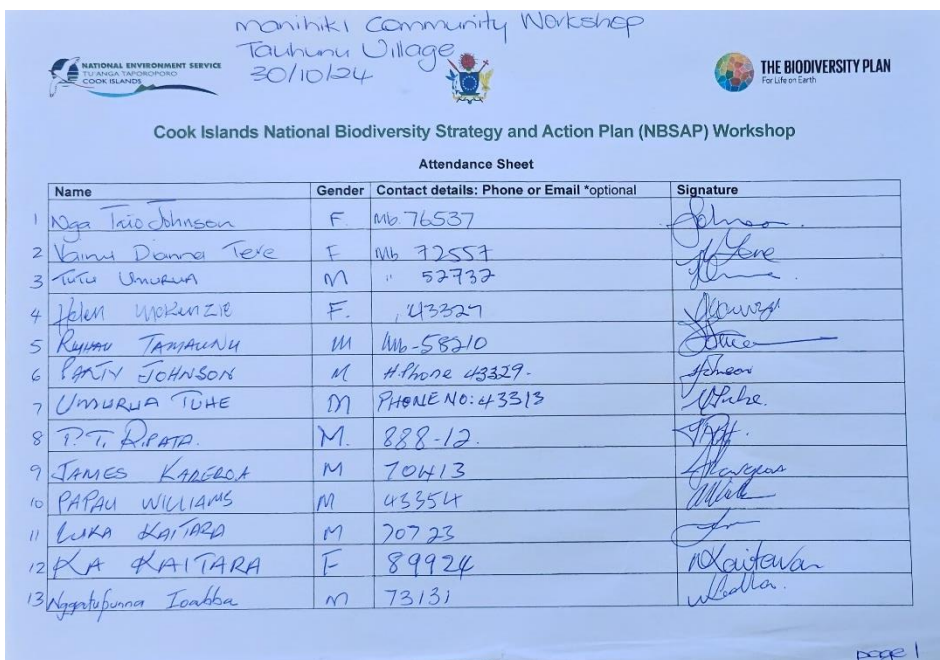 manihiki Community Workshop
Tauhunu Village
30/10/24
NATIONAL ENVIRONMENT SERVICE
TU'ANGA TAPOROPORO
COOK ISLANDS
THE BIODIVERSITY PLAN
For Life on Earth
Cook Islands National Biodiversity Strategy and Action Plan (NBSAP) Workshop
Attendance Sheet
Name Gender Contact details: Phone or Email *optional Signature
1 Nga Johnson F. Mb. 76537 Johnson.
2 Vainu Dianna Tere F Mb 72557 Tere
3 TUTU UMURUA M " 52732
4 Helen McKenZIE F. 43327
5 TAMAUNU M Mb-58210
6 PARTY JOHNSON M H.Phone 43329.
7 UMURUA TUHE M PHONE NO: 43313 Tuhe.
8 P.T. RIPATA. M. 888-12.
9 JAMES KAREROA M 70413
10 PAPAU WILLIAMS M 43354
11 LUKA KAITARA M 70723
12 KA KAITARA F 89924
13 Ioabba M 73131
page 1